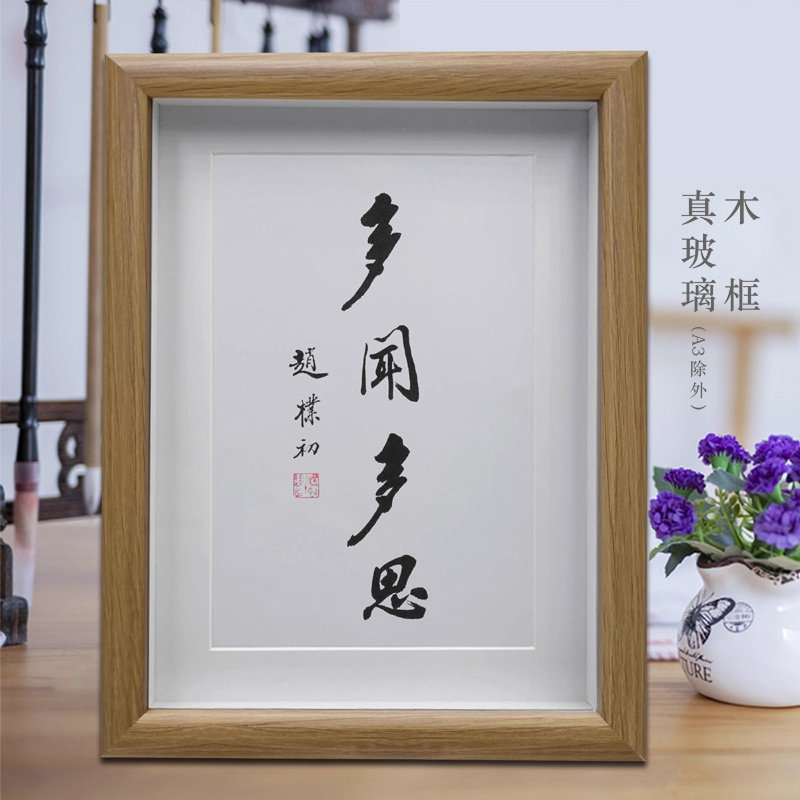 多聞多思
趙樸初
木框
真玻璃
(A3除外)
TURE